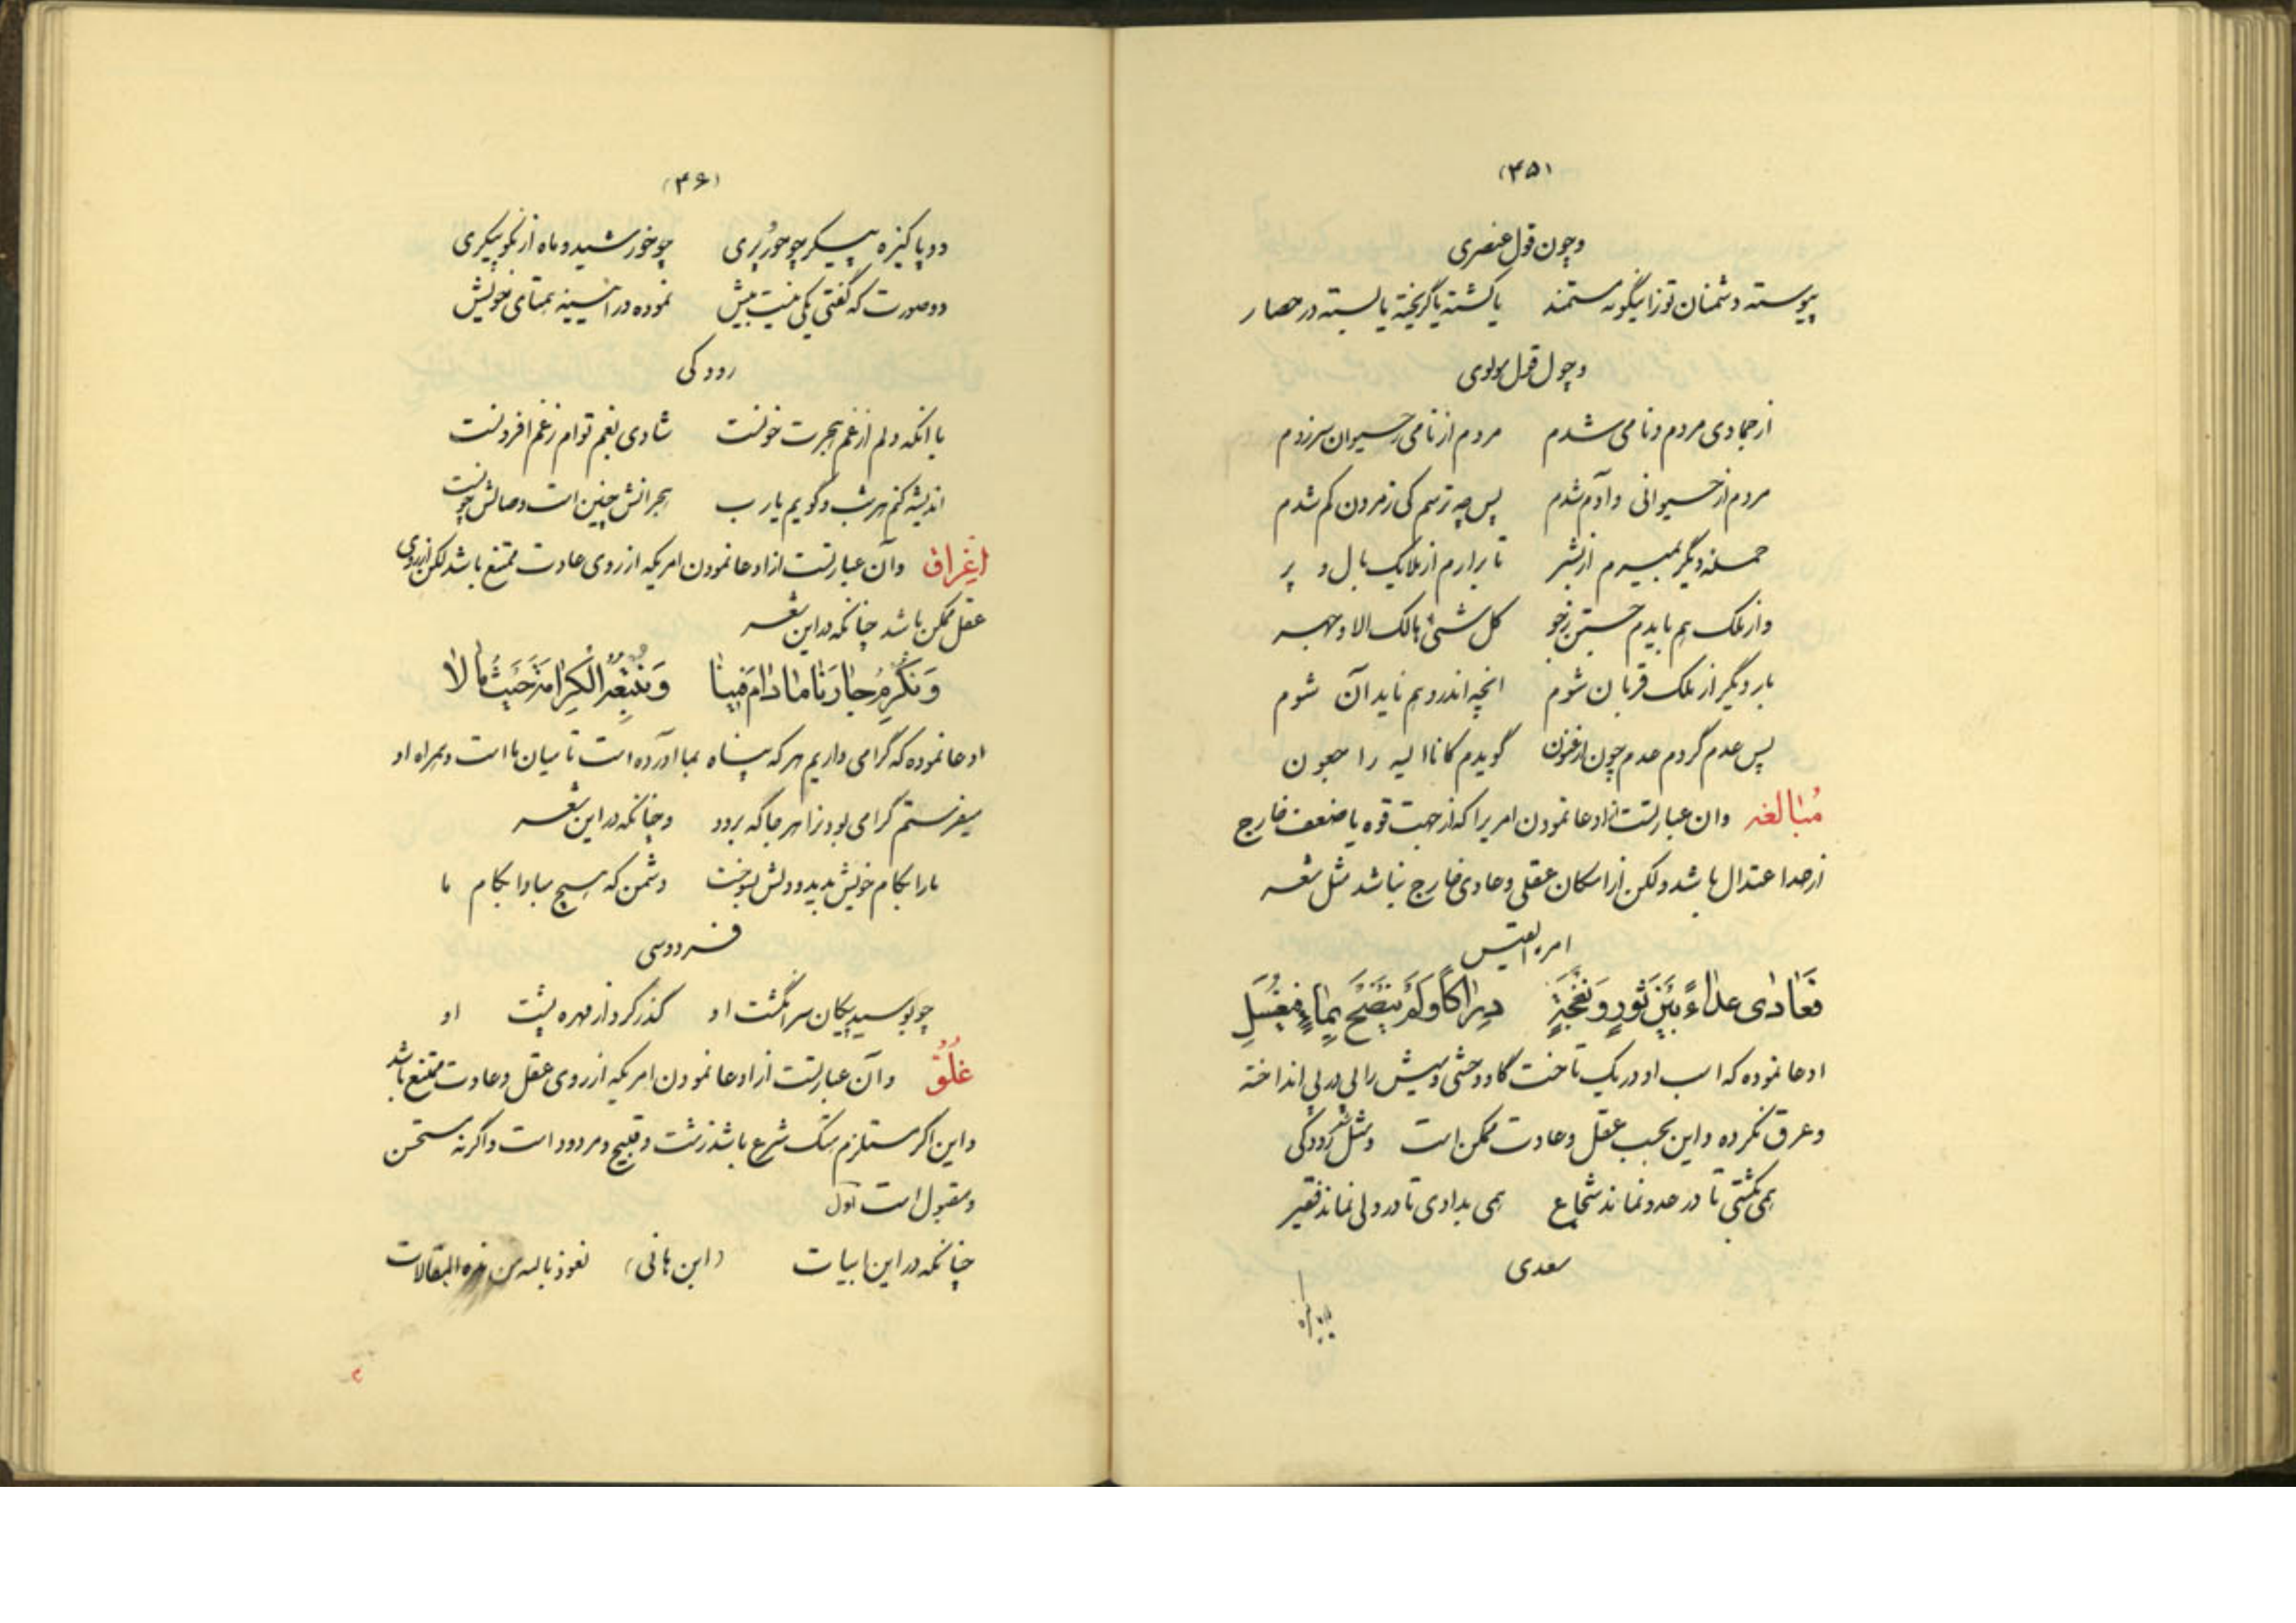 (۳۵)
وچون قول عنصری
پیوسته دشمنان تو زاینگونه مستمند یا کشته یا گریخته یا بسته در حصار
وچون قول مولوی
از جمادی مردم و نامی شدم مردم از نامی ز حیوان سرزدم
مردم از حیوانی و آدم شدم پس چه ترسم کی ز مردن کم شدم
حمله دیگر بمیرم از بشر تا برارم از ملایک بال و پر
وز ملک هم بایدم جستن ز جو کل شئ هالک الا وجهه
بار دیگر از ملک قربان شوم انچه اندر وهم ناید آن شوم
پس عدم گردم عدم چون ارغنون گویدم کانا الیه راجعون
مُبالغه وان عبارتست از ادعا نمودن امریرا که از جهت قوه یا ضعف خارج
از حد اعتدال باشد ولکن از امکان عقلی وعادی خارج نباشد مثل شعر
امرءالقیس
فَعَادٰی عِدٰاءً بَیْنَ ثَوْرٍ وَنَعْجَةٍ دِرٰاکاً وَلَمْ یَنْضَحْ بِمٰاءٍ فَیُغْسَلِ
ادعا نموده که اسب او در یک تاخت گاو وحشی ومیش را پی در پی انداخته
وعرق نکرده واین بحسب عقل وعادت ممکن است ومثل شعر رودکی
همی بکشتی تا در عدو نماند شجاع همی بدادی تا در ولی نماند فقیر
سعدی
(۳۶)
دو پاکیزه پیکر چو حور و پری چو خورشید و ماه از نکو پیکری
دو صورت که گفتی یکی نیست بیش نموده در آئینه همتای خویش
رودکی
با انکه دلم از غم هجرت خونست شادی بغم توام ز غم افزونست
اندیشه کنم هر شب و گویم یا رب هجرانش چنین است وصالش چونست
اِغراق وآن عبارتست از ادعا نمودن امریکه از روی عادت ممتنع باشد لکن از روی
عقل ممکن باشد چنانکه در این شعر
وَنُکْرِمُ جٰارَنٰا مٰادٰامَ فینٰا وَنُتْبِعُهُ الْکَرٰامَةَ حَیْثُ مٰالا
ادعا نموده که گرامی داریم هر که پناه بما آورده است تا میان ما است وهمراه او
میفرستیم گرامی بودنرا هر جا که برود وچنانکه در این شعر
ما را بکام خویش بدید و دلش بسوخت دشمن که هیچ مبادا بکام ما
فردوسی
چو بوسید پیکان سر انگشت او گذر کرد از مهره پشت او
غُلُوّ وآن عبارتست از ادعا نمودن امریکه از روی عقل وعادت ممتنع باشد
واین اگر مستلزم هتک شرع باشد زشت وقبیح ومردود است واگرنه مستحسن
ومقبول است اول
چنانکه در این ابیات (ابن هانی) نعوذ بالله من هذه المقالات